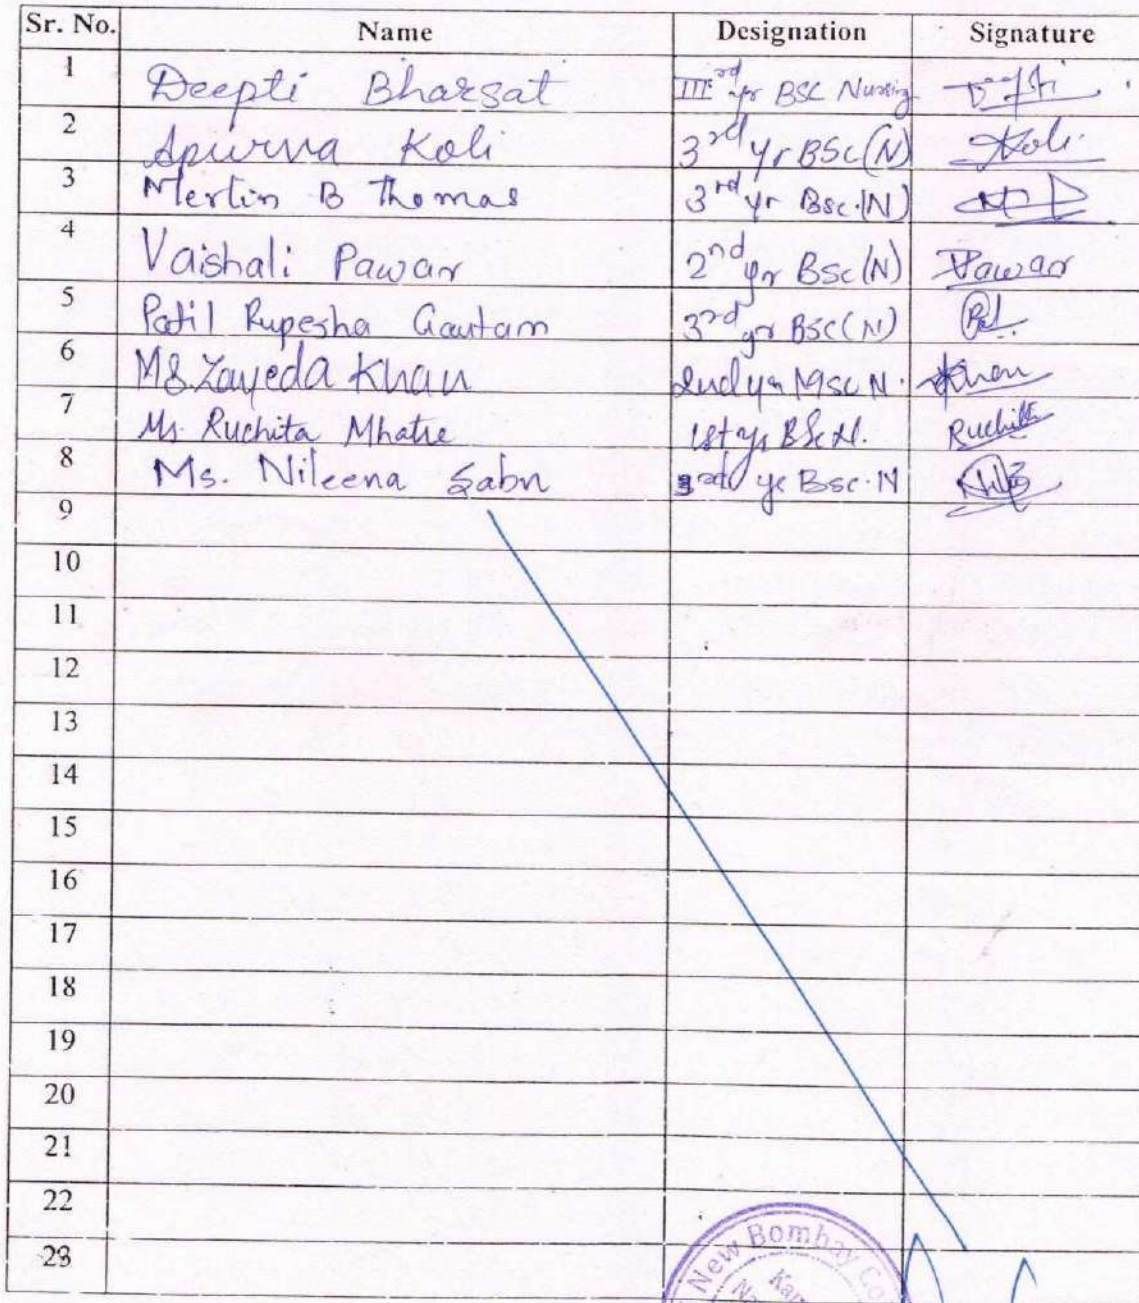 Sr. No. Name Designation Signature
1 Deepti Bharsat IIIrd yr BSC Nursing Deepti
2 Apurva Koli 3rd yr BSc(N) Koli
3 Merlin B Thomas 3rd yr Bsc.(N)
4 Vaishali Pawar 2nd yr BSc(N) Pawar
5 Patil Rupesha Gautam 3rd yr BSC(N)
6 Ms. Zayeda Khan 2nd yr MSC N. Khan
7 Ms. Ruchita Mhatre 1st yr BSc N. Ruchita
8 Ms. Nileena Sabu 3rd yr Bsc.N
9
10
11
12
13
14
15
16
17
18
19
20
21
22
23
New Bombay Co